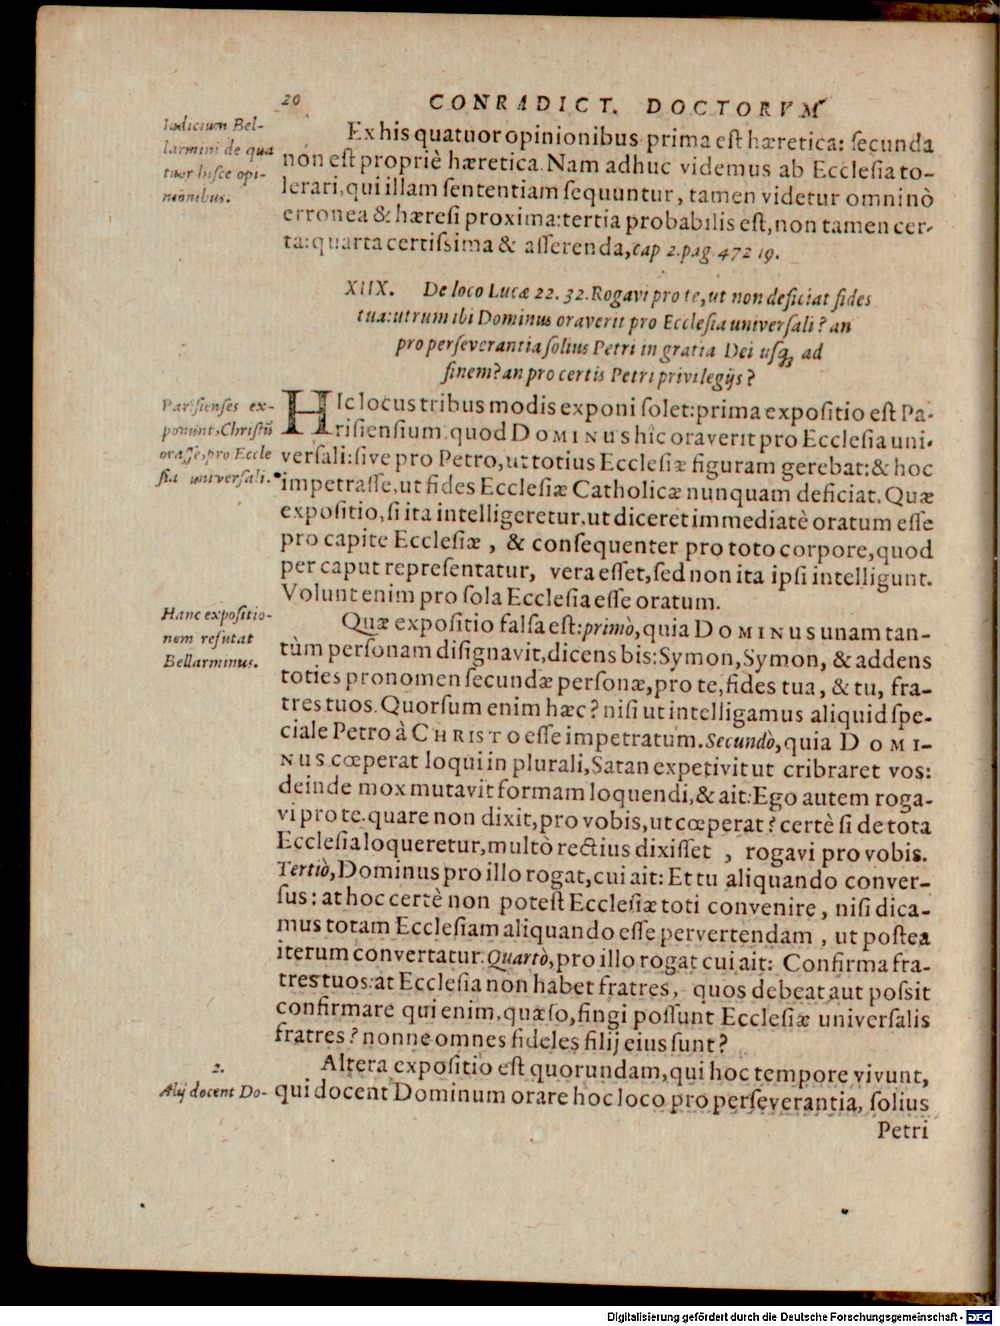 20 CONRADICT. DOCTORVM
Iudicium Bel-
larmini de qua
tuor hisce opi-
nionibus.
Ex his quatuor opinionibus prima est hæretica: secunda
non est propriè hæretica. Nam adhuc videmus ab Ecclesia to-
lerari, qui illam sententiam sequuntur, tamen videtur omninò
erronea & hæresi proxima: tertia probabilis est, non tamen cer-
ta: quarta certissima & asserenda, cap 2. pag. 472 19.
XIIX. De loco Lucæ 22. 32. Rogavi pro te, ut non deficiat fides
tua: utrum ibi Dominus oraverit pro Ecclesia universali? an
pro perseverantia solius Petri in gratia Dei usq; ad
finem? an pro certis Petri privilegijs?
Parisienses ex-
ponunt, Christũ
orasse, pro Eccle
sia universali.
HIc locus tribus modis exponi solet: prima expositio est Pa-
risiensium. quod DOMINUS hîc oraverit pro Ecclesia uni-
versali: sive pro Petro, ut totius Ecclesiæ figuram gerebat: & hoc
impetrasse, ut fides Ecclesiæ Catholicæ nunquam deficiat. Quæ
expositio, si ita intelligeretur, ut diceret immediatè oratum esse
pro capite Ecclesiæ, & consequenter pro toto corpore, quod
per caput repræsentatur, vera esset, sed non ita ipsi intelligunt.
Volunt enim pro sola Ecclesia esse oratum.
Hanc expositio-
nem refutat
Bellarminus.
Quæ expositio falsa est: primò, quia DOMINUS unam tan-
tùm personam disignavit, dicens bis: Symon, Symon, & addens
toties pronomen secundæ personæ, pro te, fides tua, & tu, fra-
tres tuos. Quorsum enim hæc? nisi ut intelligamus aliquid spe-
ciale Petro à CHRISTO esse impetratum. Secundò, quia DOMI-
NUS cœperat loqui in plurali, Satan expetivit ut cribraret vos:
deinde mox mutavit formam loquendi, & ait: Ego autem roga-
vi pro te. quare non dixit, pro vobis, ut cœperat? certè si de tota
Ecclesia loqueretur, multò rectius dixisset, rogavi pro vobis.
Tertiò, Dominus pro illo rogat, cui ait: Et tu aliquando conver-
sus: at hoc certè non potest Ecclesiæ toti convenire, nisi dica-
mus totam Ecclesiam aliquando esse pervertendam, ut postea
iterum convertatur. Quartò, pro illo rogat cui ait: Confirma fra-
tres tuos: at Ecclesia non habet fratres, quos debeat aut possit
confirmare qui enim, quæso, fingi possunt Ecclesiæ universalis
fratres? nonne omnes fideles filij eius sunt?
2.
Alij docent Do-
Altera expositio est quorundam, qui hoc tempore vivunt,
qui docent Dominum orare hoc loco pro perseverantia, solius
Petri
Digitalisierung gefördert durch die Deutsche Forschungsgemeinschaft - DFG